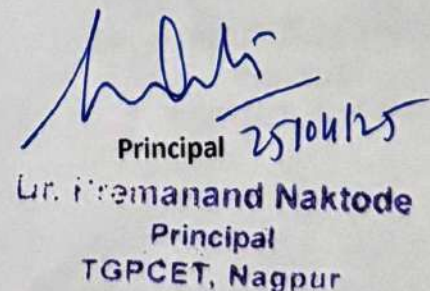 Principal 25/04/25
Dr. Premanand Naktode
Principal
TGPCET, Nagpur